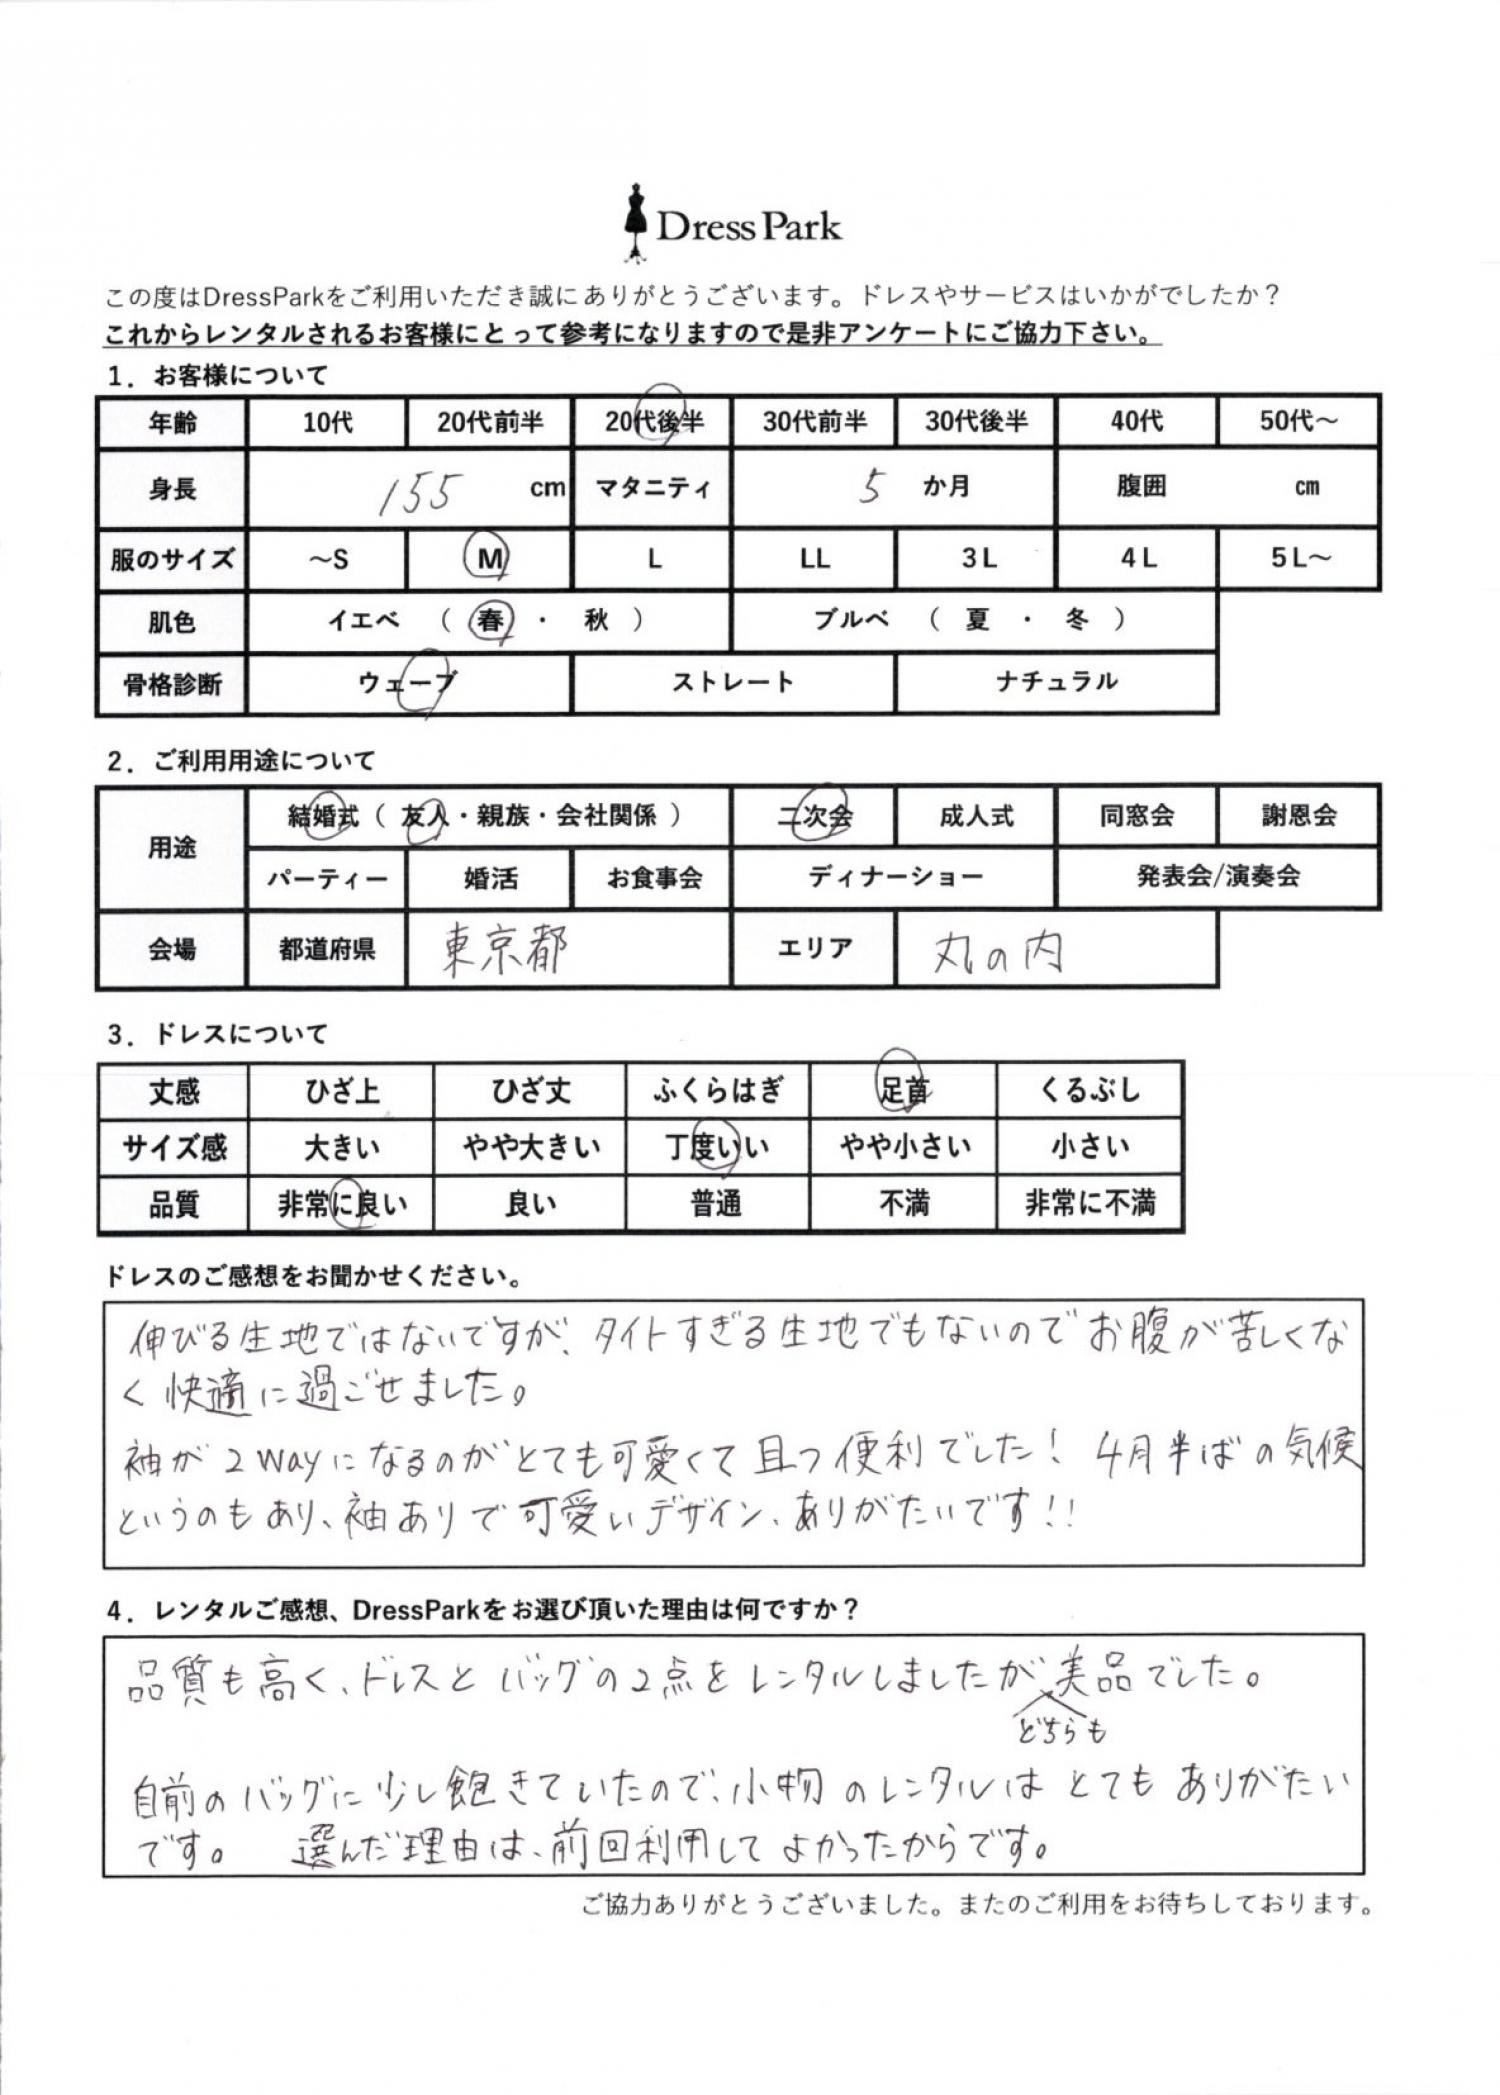 Dress Park
この度はDressParkをご利用いただき誠にありがとうございます。ドレスやサービスはいかがでしたか？
これからレンタルされるお客様にとって参考になりますので是非アンケートにご協力下さい。
1．お客様について
年齢 10代 20代前半 20代後半 30代前半 30代後半 40代 50代～
身長 155 cm マタニティ 5 か月 腹囲 cm
服のサイズ ～S M L LL 3L 4L 5L～
肌色 イエベ （ 春 ・ 秋 ） ブルベ （ 夏 ・ 冬 ）
骨格診断 ウェーブ ストレート ナチュラル
2．ご利用用途について
用途 結婚式（ 友人・親族・会社関係 ） 二次会 成人式 同窓会 謝恩会
パーティー 婚活 お食事会 ディナーショー 発表会/演奏会
会場 都道府県 東京都 エリア 丸の内
3．ドレスについて
丈感 ひざ上 ひざ丈 ふくらはぎ 足首 くるぶし
サイズ感 大きい やや大きい 丁度いい やや小さい 小さい
品質 非常に良い 良い 普通 不満 非常に不満
ドレスのご感想をお聞かせください。
伸びる生地ではないですが、タイトすぎる生地でもないのでお腹が苦しくな
く快適に過ごせました。
袖が2wayになるのがとても可愛くて且つ便利でした！ 4月半ばの気候
というのもあり、袖ありで可愛いデザイン、ありがたいです！！
4．レンタルご感想、DressParkをお選び頂いた理由は何ですか？
品質も高く、ドレスとバッグの2点をレンタルしましたが美品でした。
どちらも
自前のバッグに少し飽きていたので、小物のレンタルはとてもありがたい
です。 選んだ理由は、前回利用してよかったからです。
ご協力ありがとうございました。またのご利用をお待ちしております。